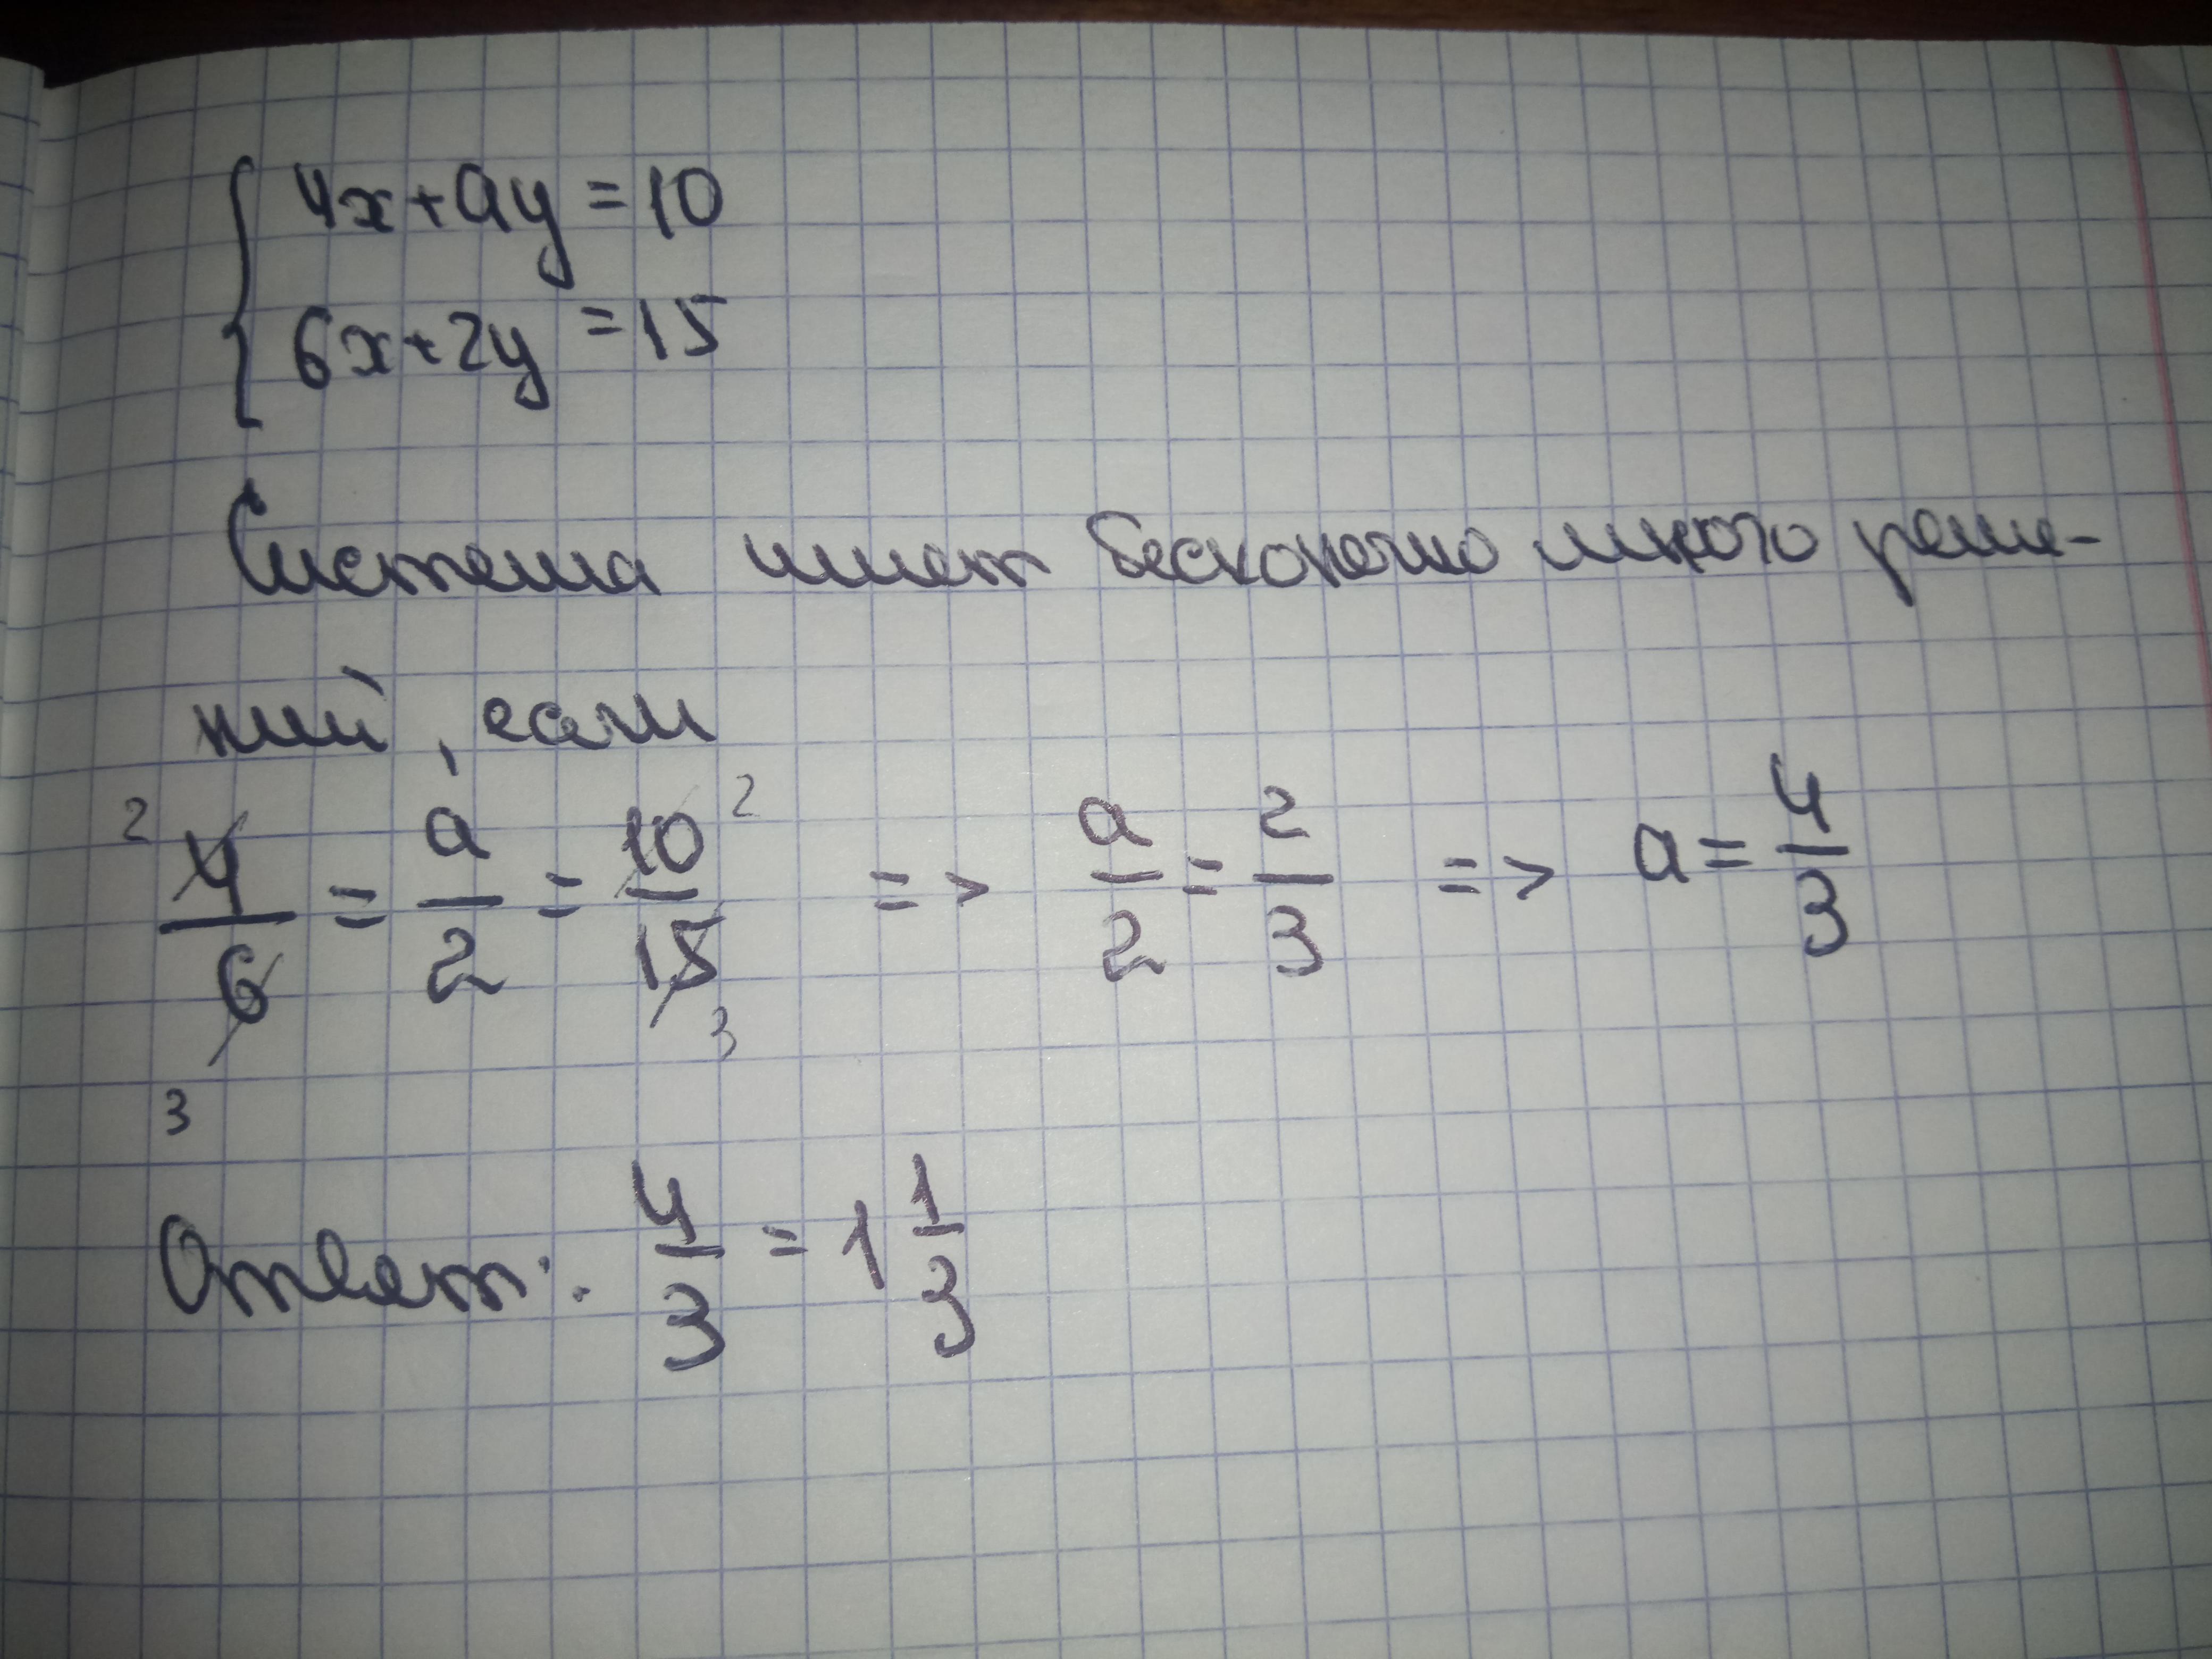 4x+ay=10
6x+2y=15
Система имеет бесконечно много реше-
ний, если
2 4/6 3 = a/2 = 10/15 2 3 => a/2 = 2/3 => a = 4/3
Ответ: 4/3 = 1 1/3